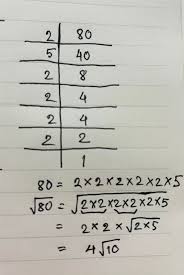 2 | 80
5 | 40
2 | 8
2 | 4
2 | 4
2 | 2
1
80 = 2×2×2×2×2×5
√80 = √2×2×2×2×2×5
= 2×2×√2×5
= 4√10